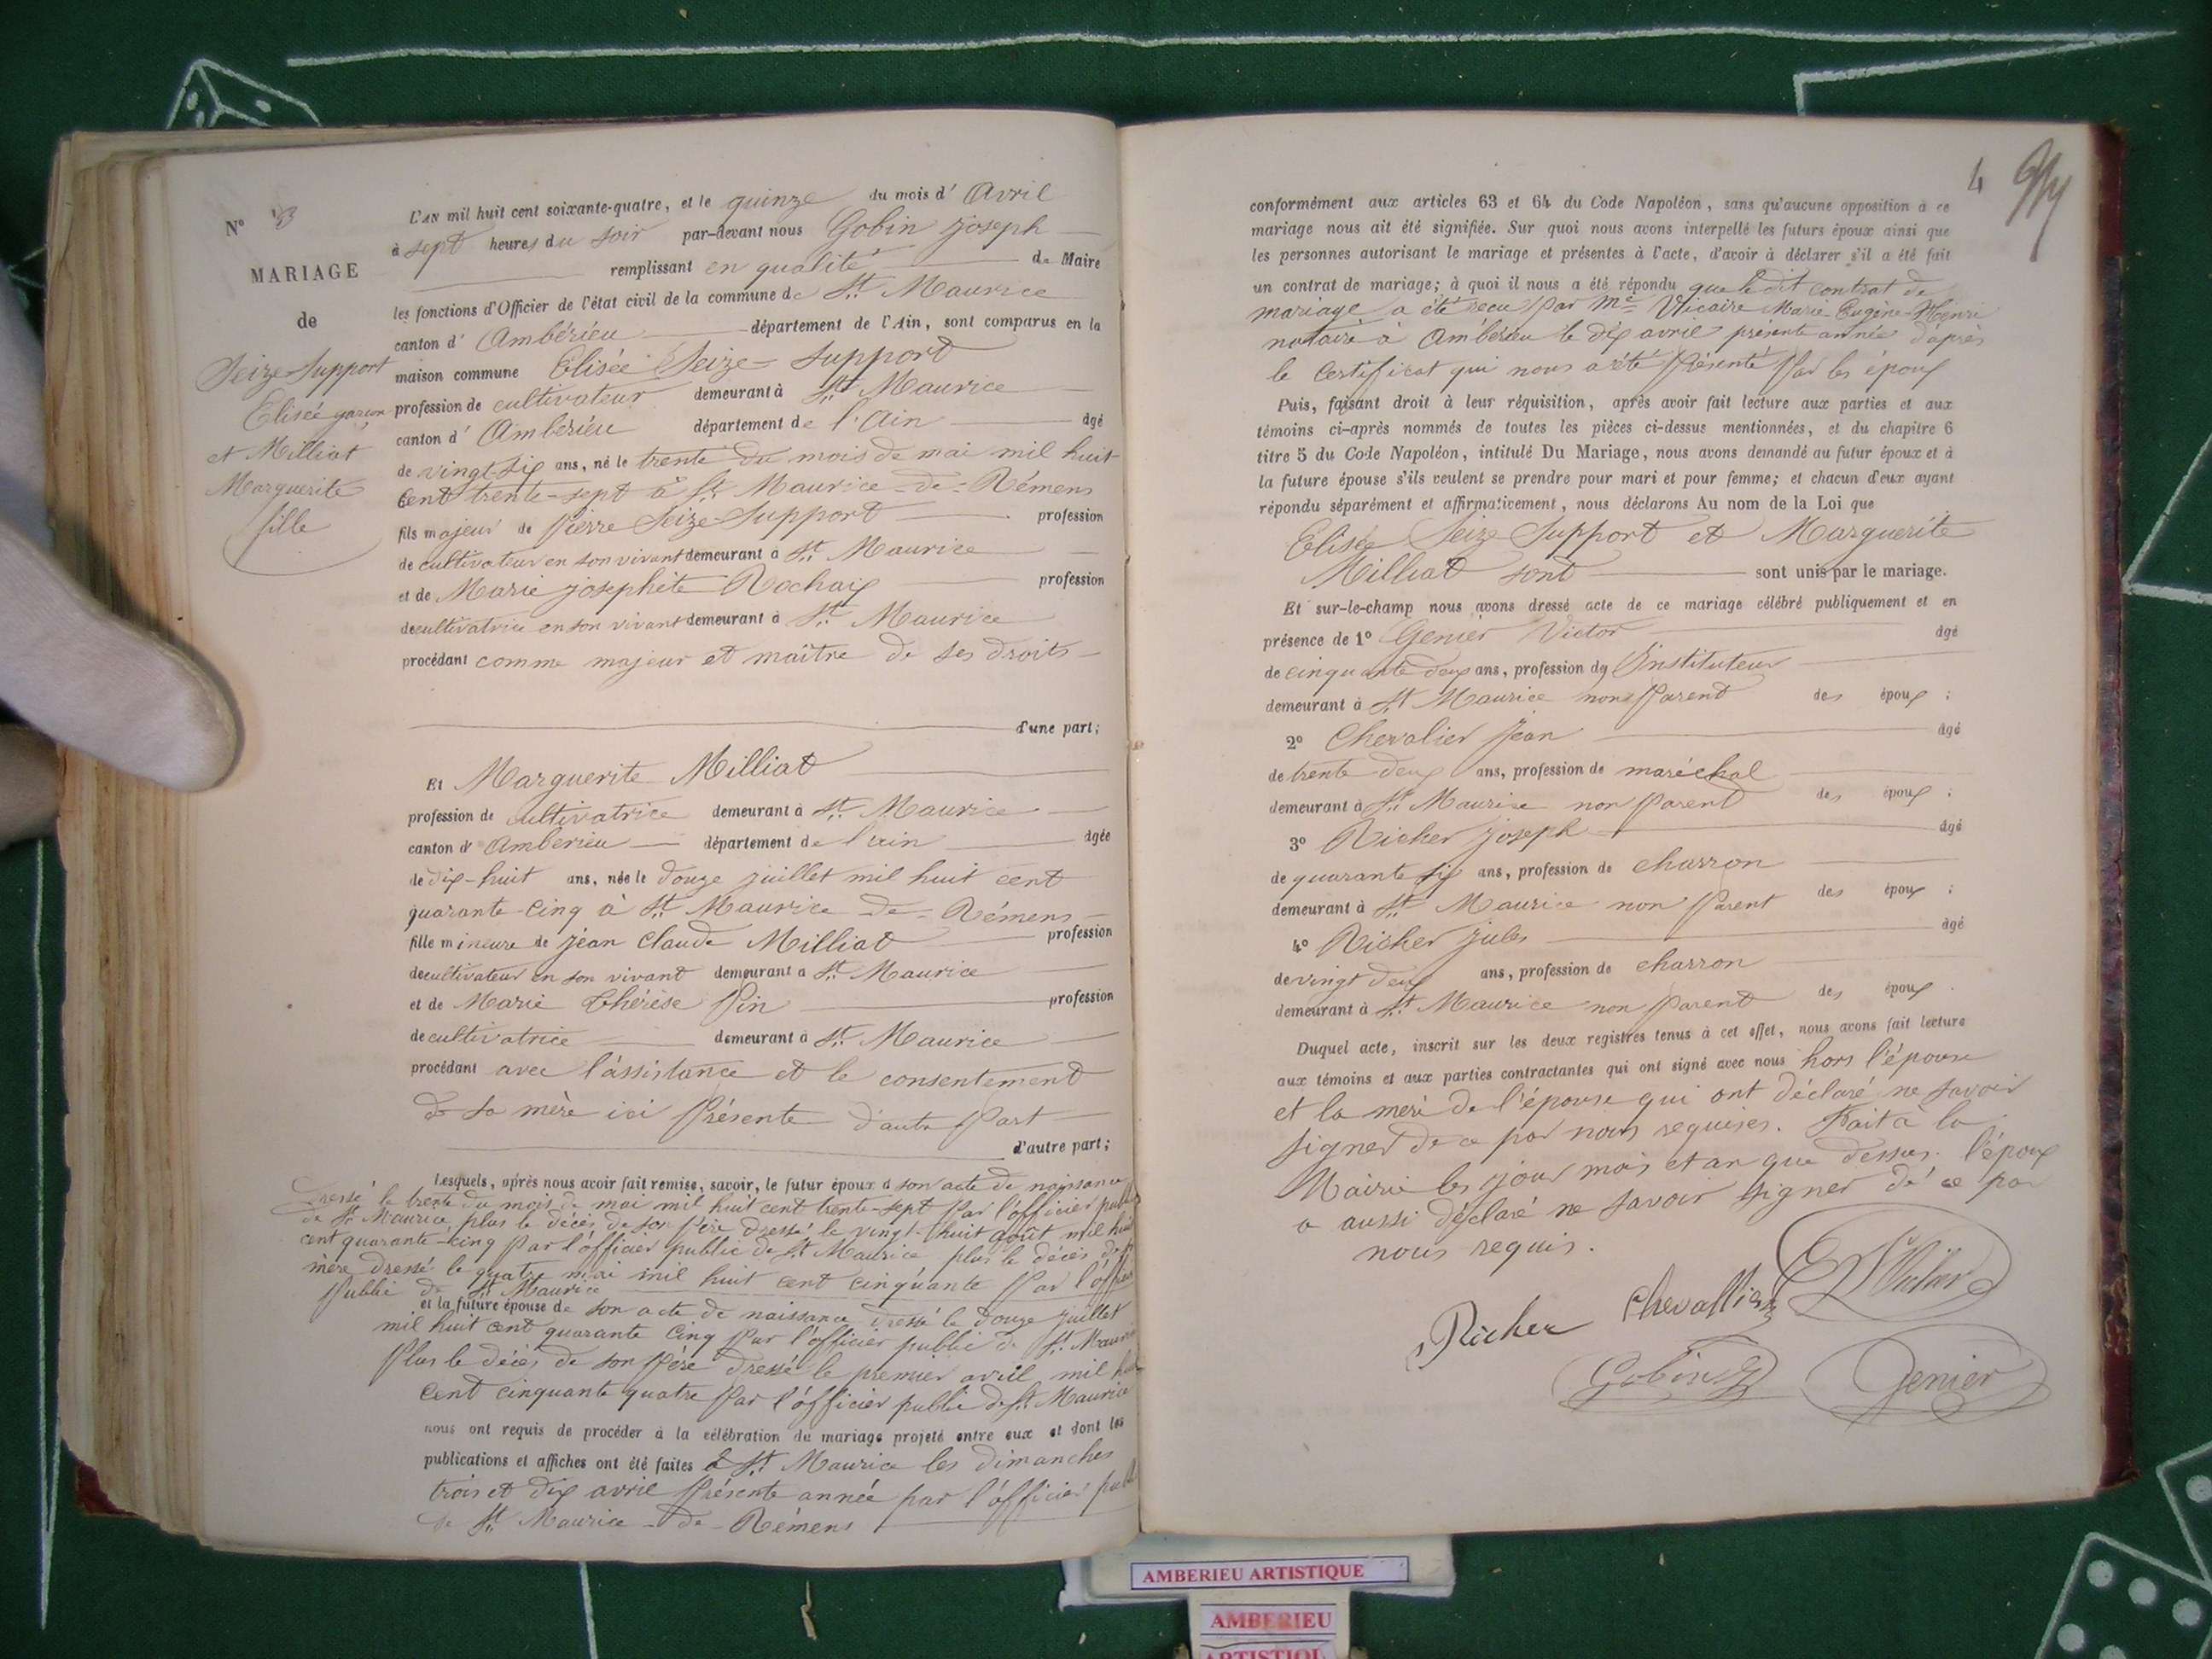 N° 3
MARIAGE
de
Seize-Support
Elisée garçon
et Milliat
Marguerite
fille
L'AN mil huit cent soixante-quatre, et le quinze du mois d' Avril
à sept heures du soir par-devant nous Gobin Joseph
remplissant en qualité de Maire
les fonctions d'Officier de l'état civil de la commune de St Maurice
canton d' Ambérieu département de l'Ain, sont comparus en la
maison commune Elisée Seize-Support
profession de cultivateur demeurant à St Maurice
canton d' Ambérieu département de l'Ain âgé
de vingt-six ans, né le trente du mois de mai mil huit
cent trente-sept à St Maurice-de-Rémens
fils majeur de Pierre Seize-Support profession
de cultivateur en son vivant demeurant à St Maurice
et de Marie josephète Rochaix profession
de cultivatrice en son vivant demeurant à St Maurice
procédant comme majeur et maître de ses droits
d'une part;
Et Marguerite Milliat
profession de cultivatrice demeurant à St Maurice
canton d' Amberieu département de l'ain âgée
de dix-huit ans, née le douze juillet mil huit cent
quarante-cinq à St Maurice-de-Rémens
fille mineure de jean Claude Milliat profession
de cultivateur en son vivant demeurant à St Maurice
et de Marie Thérèse Pin profession
de cultivatrice demeurant à St Maurice
procédant avec l'assistance et le consentement
de sa mère ici Présente d'autre Part
d'autre part;
Lesquels, après nous avoir fait remise, savoir, le futur époux d son acte de naissance
Dressé le trente du mois de mai mil huit cent trente-sept Par l'officier public
de St Maurice, plus le décès de son Père dressé le vingt-huit août mil huit
cent quarante-cinq Par l'officier public de St Maurice plus le décès de sa
mère dressé le quatre mai mil huit cent cinquante Par l'officier
Public de St Maurice
et la future épouse de son acte de naissance dressé le douze juillet
mil huit cent quarante cinq Par l'officier public de St Maurice
Plus le décès de son Père dressé le premier avril mil huit
cent cinquante quatre Par l'officier public de St Maurice
nous ont requis de procéder à la célébration du mariage projeté entre eux et dont les
publications et affiches ont été faites à St Maurice les dimanches
trois et dix avril Présente année par l'officier public
de St Maurice-de-Rémens
4
conformément aux articles 63 et 64 du Code Napoléon, sans qu'aucune opposition à ce
mariage nous ait été signifiée. Sur quoi nous avons interpellé les futurs époux ainsi que
les personnes autorisant le mariage et présentes à l'acte, d'avoir à déclarer s'il a été fait
un contrat de mariage; à quoi il nous a été répondu que le dit contrat de
mariage a été reçu Par Me Vicaire Marie-Eugène-Henri
notaire à Ambérieu le dix avril présente année d'après
le Certificat qui nous a été Présenté Par les époux
Puis, faisant droit à leur réquisition, après avoir fait lecture aux parties et aux
témoins ci-après nommés de toutes les pièces ci-dessus mentionnées, et du chapitre 6
titre 5 du Code Napoléon, intitulé Du Mariage, nous avons demandé au futur époux et à
la future épouse s'ils veulent se prendre pour mari et pour femme; et chacun d'eux ayant
répondu séparément et affirmativement, nous déclarons Au nom de la Loi que
Elisée Seize Support et Marguerite
Milliat sont sont unis par le mariage.
Et sur-le-champ nous avons dressé acte de ce mariage célébré publiquement et en
présence de 1° Genier Victor âgé
de cinquante deux ans, profession d' Instituteur
demeurant à St Maurice non Parent des époux ;
2° Chevalier Jean âgé
de trente-deux ans, profession de maréchal
demeurant à St Maurice non Parent des époux ;
3° Richer joseph âgé
de quarante six ans, profession de charron
demeurant à St Maurice non Parent des époux ;
4° Richer jules âgé
de vingt deux ans, profession de charron
demeurant à St Maurice non Parent des époux .
Duquel acte, inscrit sur les deux registres tenus à cet effet, nous avons fait lecture
aux témoins et aux parties contractantes qui ont signé avec nous hors l'épouse
et la mère de l'épouse qui ont déclaré ne savoir
signer de ce par nous requises. Fait à la
Mairie les jour mois et an que dessus. l'époux
a aussi déclaré ne savoir signer de ce par
nous requis.
Richer Chevallier
Gobin Genier
AMBERIEU ARTISTIQUE
AMBERIEU
ARTISTIQUE